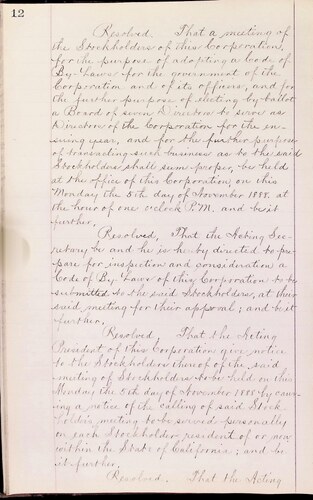 12
Resolved. That a meeting of
the Stockholders of this Corporation,
for the purpose of adopting a Code of
By-Laws for the government of the
Corporation and of its officers, and for
the further purpose of electing by ballot
a Board of seven Directors to serve as
Directors of the Corporation for the en-
suing year, and for the further purpose
of transacting such business as to the said
Stockholders shall seem proper, be held
at the office of this Corporation, on this
Monday the 5th day of November 1888, at
the hour of one o'clock P.M. and be it
further,
Resolved, That the Acting Sec-
retary be and he is he-by directed to pre-
pare for inspection and consideration a
Code of By Laws of this Corporation to be
submitted to the said Stockholders, at their
said meeting for their approval; and be it
further.
Resolved That the Acting
President of this Corporation give notice
to the Stockholders thereof of the said
meeting of Stockholders to be held on this
Monday the 5th day of November 1888 by caus-
ing a notice of the calling of said Stock-
holders meeting to be served personally
on each Stockholder resident of or now
within the State of California; and be
it further
Resolved. That the Acting